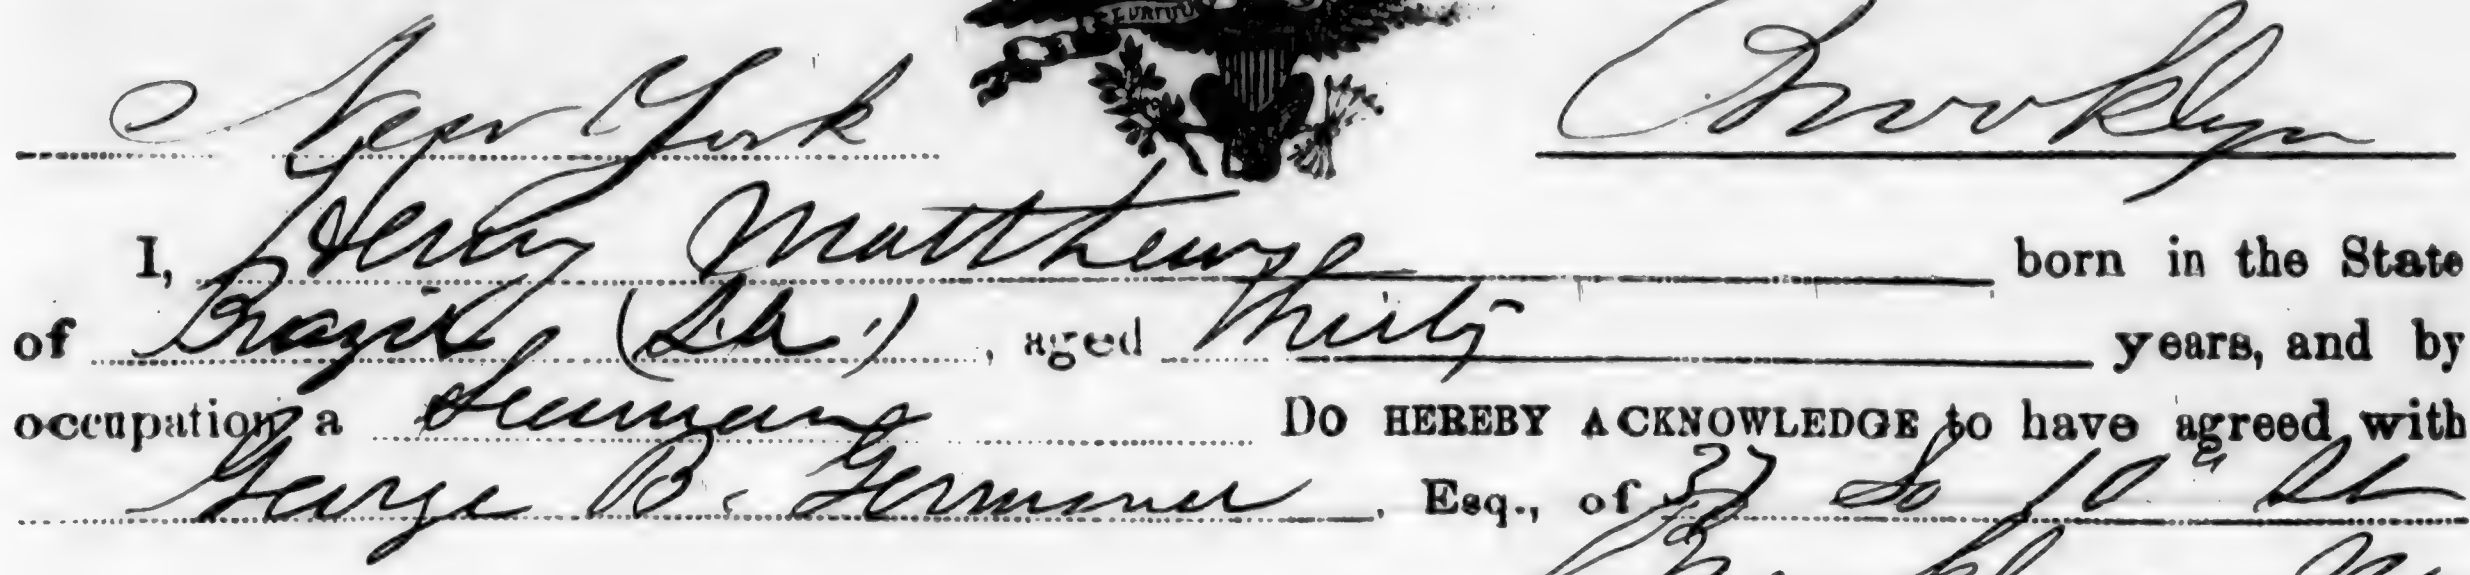 New York Brooklyn
I, Henry Matthews born in the State
of Brazil (SA.), aged Thirty years, and by
occupation a Seaman Do HEREBY ACKNOWLEDGE to have agreed with
George B. Germaner, Esq., of 37 So 10" St